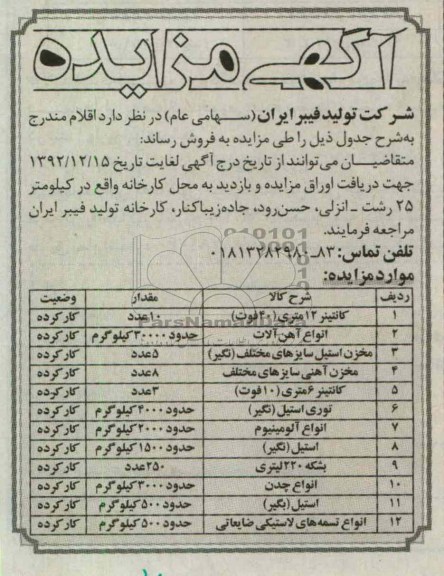 آگهی مزایده
شرکت تولید فیبر ایران (سهامی عام) در نظر دارد اقلام مندرج
به‌شرح جدول ذیل را طی مزایده به فروش رساند:
متقاضیان می‌توانند از تاریخ درج آگهی لغایت تاریخ ۱۳۹۲/۱۲/۱۵
جهت دریافت اوراق مزایده و بازدید به محل کارخانه واقع در کیلومتر
۲۵ رشت ـ انزلی، حسن‌رود، جاده‌زیباکنار، کارخانه تولید فیبر ایران
مراجعه فرمایند.
تلفن تماس: ۸۳ـ۰۱۸۱۳۲۸۲۹۸۰
موارد مزایده:
ردیف شرح کالا مقدار وضعیت
۱ کانتینر ۱۲ متری (۴۰ فوت) ۱۰ عدد کارکرده
۲ انواع آهن‌آلات حدود ۳۰۰۰۰ کیلوگرم کارکرده
۳ مخزن استیل سایزهای مختلف (نگیر) ۵ عدد کارکرده
۴ مخزن آهنی سایزهای مختلف ۸ عدد کارکرده
۵ کانتینر ۶ متری (۱۰ فوت) ۳ عدد کارکرده
۶ توری استیل (نگیر) حدود ۴۰۰۰ کیلوگرم کارکرده
۷ انواع آلومینیوم حدود ۲۰۰۰ کیلوگرم کارکرده
۸ استیل (نگیر) حدود ۱۵۰۰ کیلوگرم کارکرده
۹ بشکه ۲۲۰ لیتری ۲۵۰ عدد کارکرده
۱۰ انواع چدن حدود ۳۰۰۰ کیلوگرم کارکرده
۱۱ استیل (بگیر) حدود ۵۰۰ کیلوگرم کارکرده
۱۲ انواع تسمه‌های لاستیکی ضایعاتی حدود ۵۰۰ کیلوگرم کارکرده